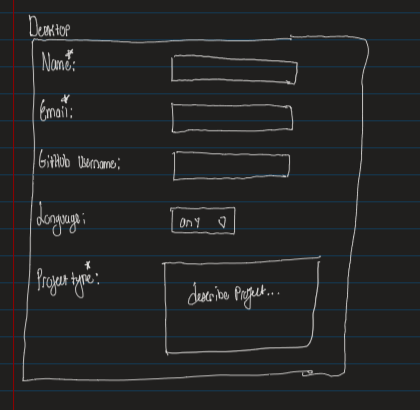 Desktop
Name*:
Email*:
GitHub Username:
Language: any
Project type*: describe Project...